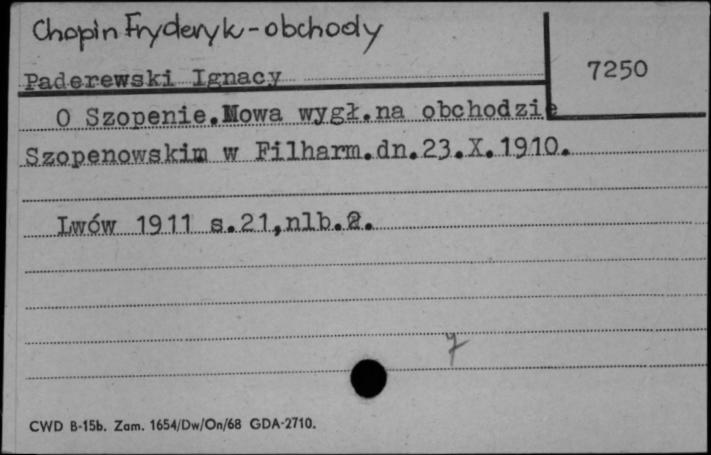 Chopin Fryderyk - obchody
7250
Paderewski Ignacy
O Szopenie.Mowa wygł.na obchodzie
Szopenowskim w Filharm.dn.23.X.1910.
Lwów 1911 s.21,nlb.2.
7
CWD B-15b. Zam. 1654/Dw/On/68 GDA-2710.